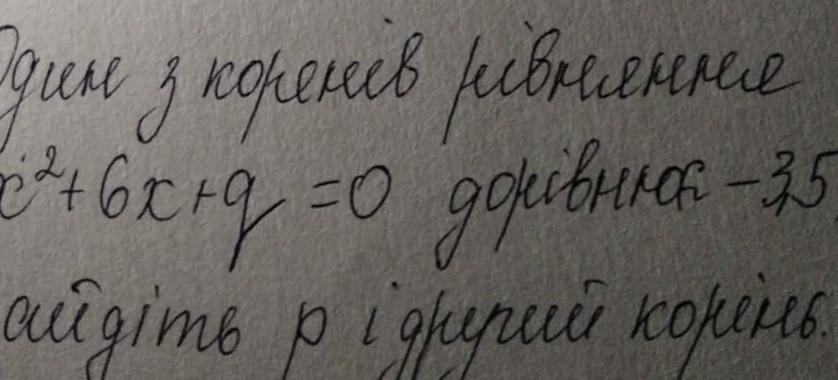 Один з коренів рівняння
x²+6x+q=0 дорівнює -3,5
айдіть р і другий корінь.